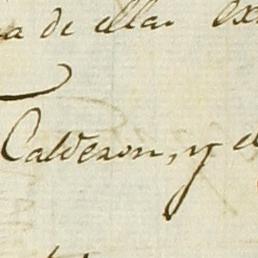 a de ella.
Calderon, y